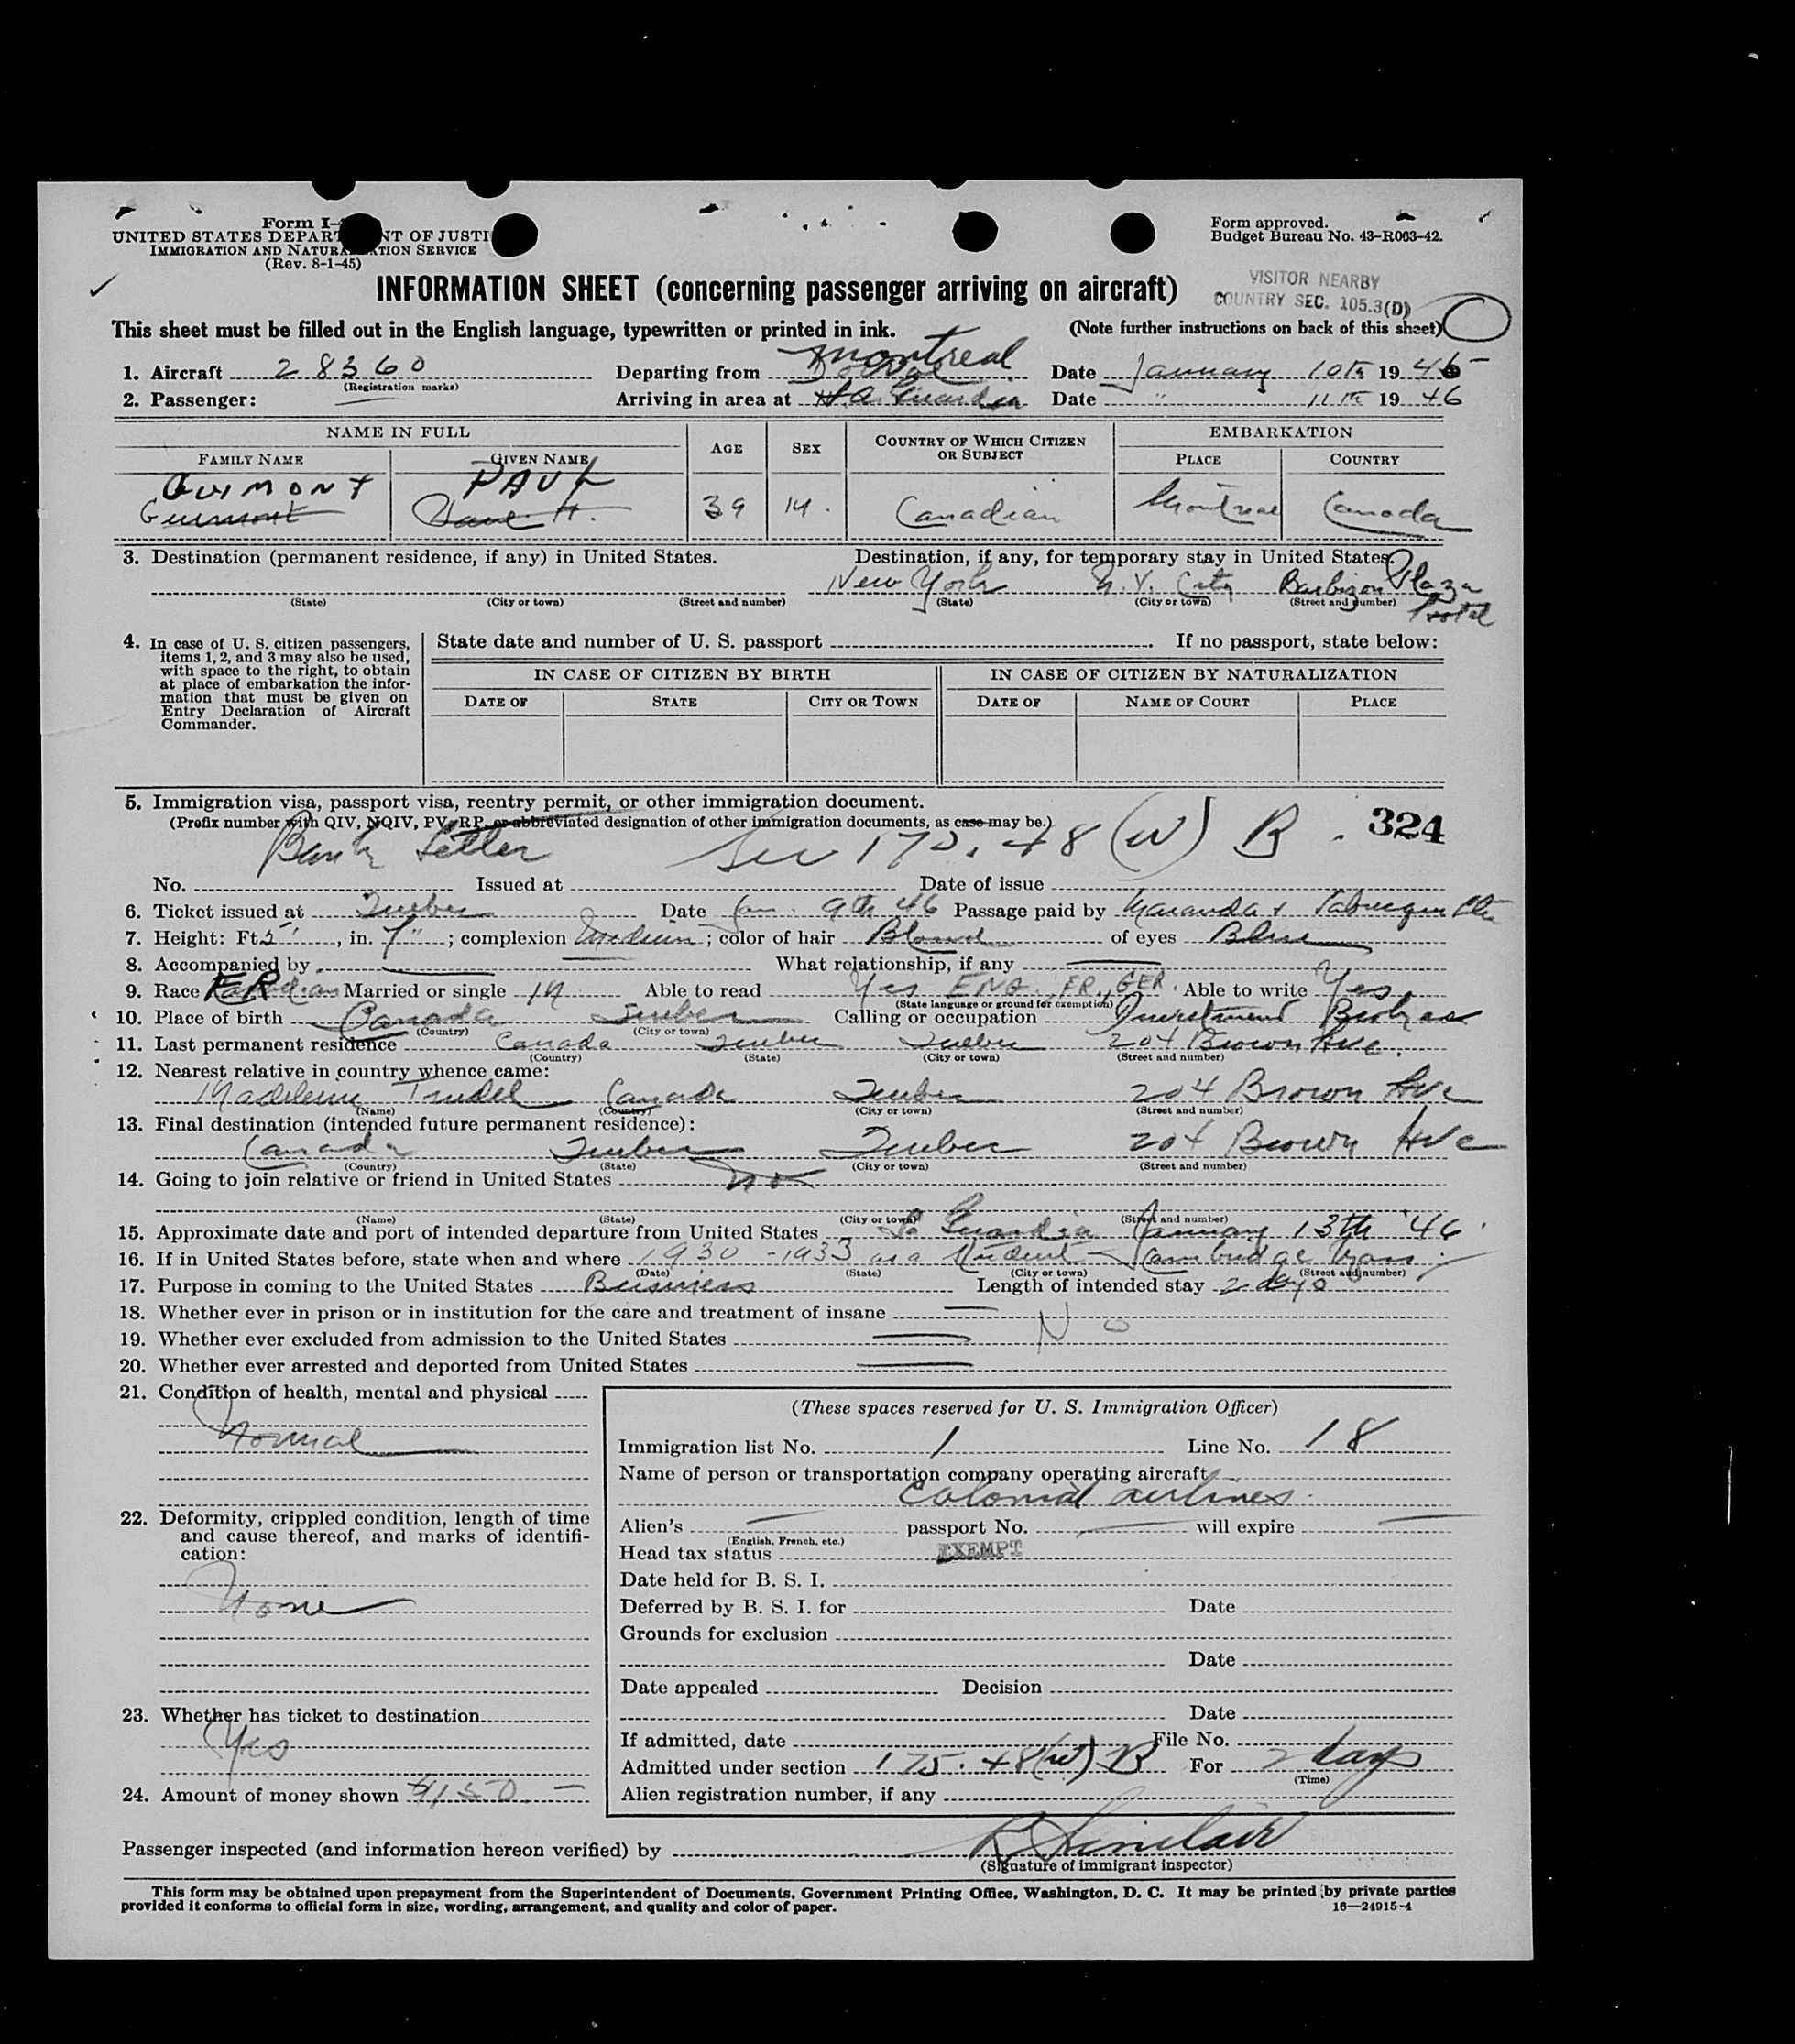 Form I-
UNITED STATES DEPAR NT OF JUSTI
IMMIGRATION AND NATURA TION SERVICE
(Rev. 8-1-45)
Form approved.
Budget Bureau No. 43-R063-42.
INFORMATION SHEET (concerning passenger arriving on aircraft)
VISITOR NEARBY
COUNTRY SEC. 105.3(D)
This sheet must be filled out in the English language, typewritten or printed in ink. (Note further instructions on back of this sheet)
1. Aircraft 28360 Departing from Montreal Date January 10th 1946
(Registration marks)
2. Passenger: Arriving in area at La Guardia Date " 11th 1946
NAME IN FULL AGE SEX COUNTRY OF WHICH CITIZEN OR SUBJECT EMBARKATION
FAMILY NAME GIVEN NAME PLACE COUNTRY
GUIMONT PAUL
Guimont Paul H. 39 M. Canadian Montreal Canada
3. Destination (permanent residence, if any) in United States. Destination, if any, for temporary stay in United States.
New York N.Y. City Barbizon Plaza Hotel
(State) (City or town) (Street and number) (State) (City or town) (Street and number)
4. In case of U. S. citizen passengers, items 1, 2, and 3 may also be used, with space to the right, to obtain at place of embarkation the information that must be given on Entry Declaration of Aircraft Commander.
State date and number of U. S. passport If no passport, state below:
IN CASE OF CITIZEN BY BIRTH IN CASE OF CITIZEN BY NATURALIZATION
DATE OF STATE CITY OR TOWN DATE OF NAME OF COURT PLACE
5. Immigration visa, passport visa, reentry permit, or other immigration document.
(Prefix number with QIV, NQIV, PV, RP, or abbreviated designation of other immigration documents, as case may be.)
324
Bank Letter Sec 175.48(W) B.
No. Issued at Date of issue
6. Ticket issued at Quebec Date Jan. 9th 46 Passage paid by
7. Height: Ft. 5', in. 7"; complexion Medium; color of hair Blond of eyes Blue
8. Accompanied by What relationship, if any
9. Race FR Married or single M Able to read Yes ENG. FR., GER. Able to write Yes
(State language or ground for exemption)
10. Place of birth Canada Quebec Calling or occupation Investment
(Country) (City or town)
11. Last permanent residence Canada Quebec Quebec 204 Brown Ave.
(Country) (State) (City or town) (Street and number)
12. Nearest relative in country whence came:
Madeleine Trudel Canada Quebec 204 Brown Ave
(Name) (Country) (City or town) (Street and number)
13. Final destination (intended future permanent residence):
Canada Quebec Quebec 204 Brown Ave
(Country) (State) (City or town) (Street and number)
14. Going to join relative or friend in United States no
(Name) (State) (City or town) (Street and number)
15. Approximate date and port of intended departure from United States La Guardia January 13th '46.
16. If in United States before, state when and where 1930-1933 as a student Cambridge Mass.
(Date) (State) (City or town) (Street and number)
17. Purpose in coming to the United States Business Length of intended stay 2 days
18. Whether ever in prison or in institution for the care and treatment of insane
19. Whether ever excluded from admission to the United States No
20. Whether ever arrested and deported from United States
21. Condition of health, mental and physical
Normal
22. Deformity, crippled condition, length of time and cause thereof, and marks of identification:
None
23. Whether has ticket to destination
Yes
24. Amount of money shown $150.-
(These spaces reserved for U. S. Immigration Officer)
Immigration list No. 1 Line No. 18
Name of person or transportation company operating aircraft
Colonial airlines.
Alien's passport No. will expire
(English, French, etc.)
Head tax status EXEMPT
Date held for B. S. I.
Deferred by B. S. I. for Date
Grounds for exclusion
Date
Date appealed Decision
Date
If admitted, date File No.
Admitted under section 175.48(W) B For 2 days
(Time)
Alien registration number, if any
Passenger inspected (and information hereon verified) by Sinclair
(Signature of immigrant inspector)
This form may be obtained upon prepayment from the Superintendent of Documents, Government Printing Office, Washington, D. C. It may be printed by private parties
provided it conforms to official form in size, wording, arrangement, and quality and color of paper. 16—24915-4